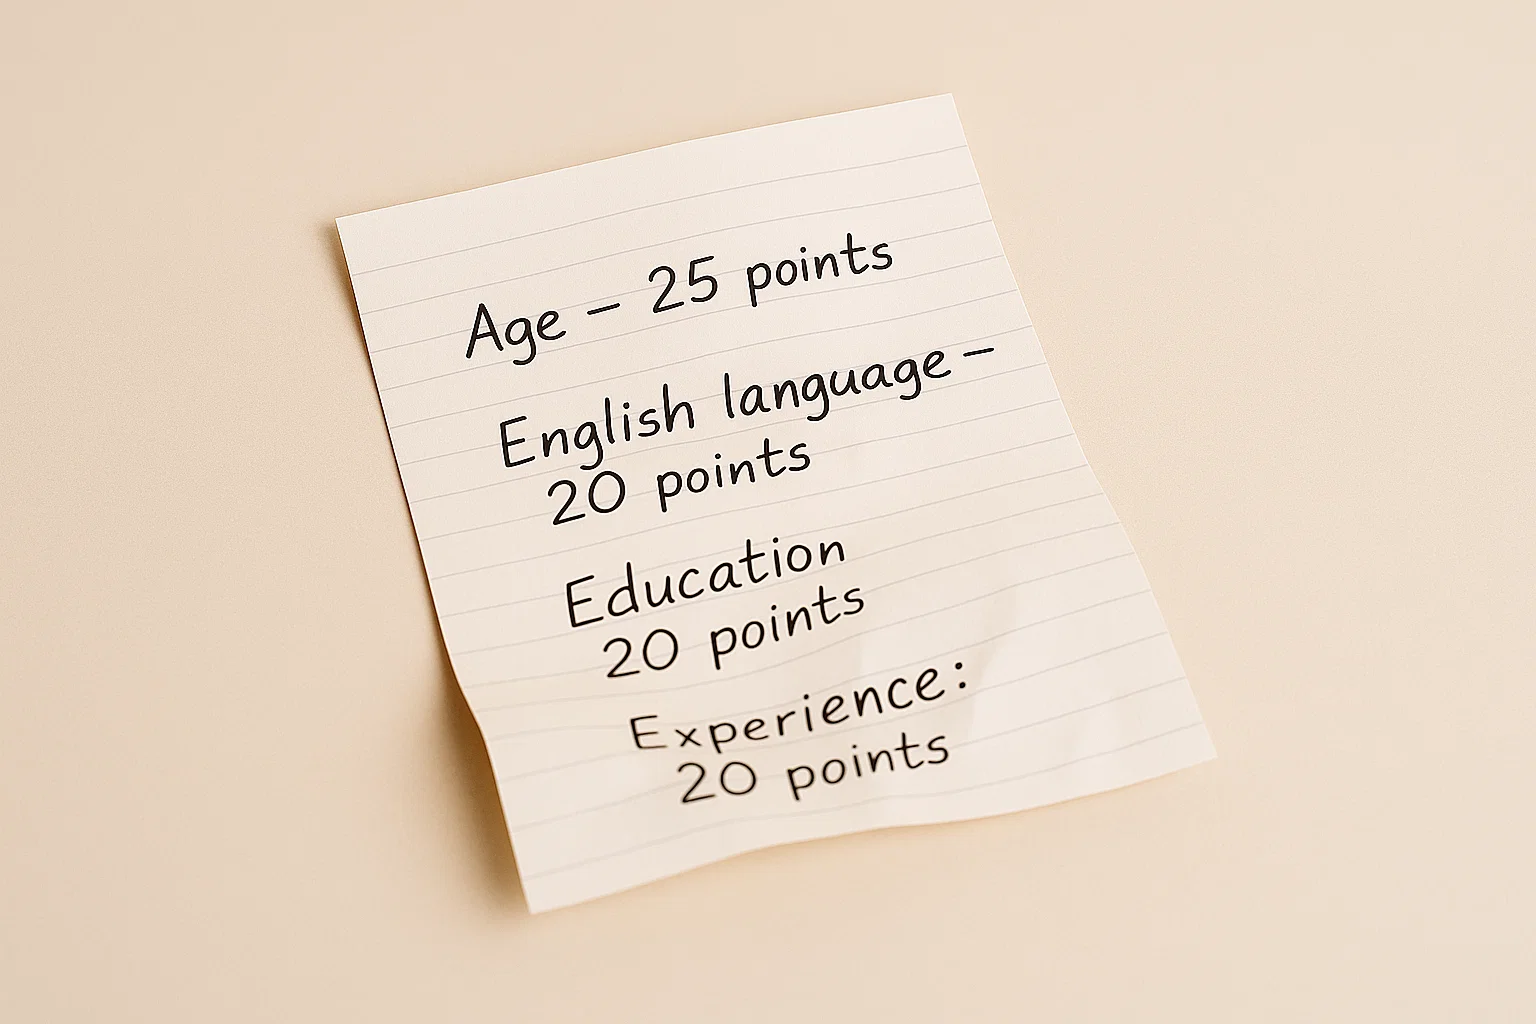 Age – 25 points
English language –
20 points
Education
20 points
Experience:
20 points